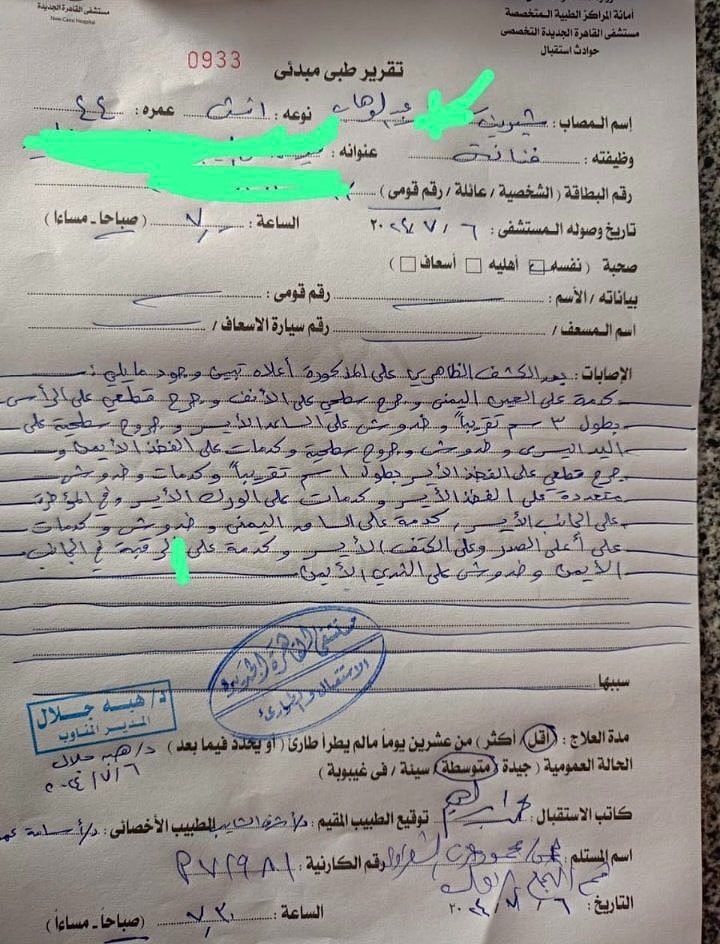 أمانة المراكز الطبية المتخصصة
مستشفى القاهرة الجديدة
New Cairo Hospital
مستشفى القاهرة الجديدة التخصصى
حوادث استقبال
0933
تقرير طبى مبدئى
اسم المصاب : شيرين عبد الوهاب نوعه : انثى عمره : ٤٤
وظيفته : فنانة عنوانه :
رقم البطاقة ( الشخصية / عائلة / رقم قومى )
تاريخ وصوله المستشفى : ٦ / ٧ / ٢٠٢٤ الساعة : ٧,٠٠ ( صباحا - مساءا )
صحبة ( نفسه أهليه أسعاف )
بياناته / الأسم : رقم قومى :
اسم المسعف / رقم سيارة الاسعاف /
الإصابات : بعد الكشف الظاهري على المذكورة أعلاه تبين وجود ما يلي :
كدمة على العين اليمنى و جرح سطحي على الأنف و جرح قطعي على الرأس
بطول ٣ سم تقريباً و خدوش على الساعد الأيسر و جروح سطحية على
اليد اليسرى و خدوش و جروح سطحية و كدمات على الفخذ الأيمن و
جرح قطعي على الفخذ الأيسر بطول ١ سم تقريباً و كدمات و خدوش
متعددة على الفخذ الأيسر و كدمات على الورك الأيسر وفي المؤخرة
على الجانب الأيسر , كدمة على الساعد اليمنى و خدوش و كدمات
على أعلى الصدر وعلى الكتف الأيسر و كدمة على الرقبة في الجانب
الأيمن و خدوش على الثدي الأيمن
سببها
مستشفى القاهرة الجديدة
الاستقبال والطوارئ
د/ هبه جلال
المدير المناوب
مدة العلاج : ( اقل / أكثر ) من عشرين يوماً مالم يطرأ طارئ ( أو يحدد فيما بعد )
د/ هبه جلال
٢٠٢٤/٧/٦
الحالة العمومية ( جيدة / متوسطة / سيئة / فى غيبوبة )
كاتب الاستقبال : توقيع الطبيب المقيم : د/ أشرف الطبيب الأخصائى : د/ أسامة
اسم المستلم : محمود رقم الكارنية :
التاريخ : ٦ / ٧ / ٢٠٢٤ الساعة : ٧,٣٠ ( صباحاً - مساءاً )